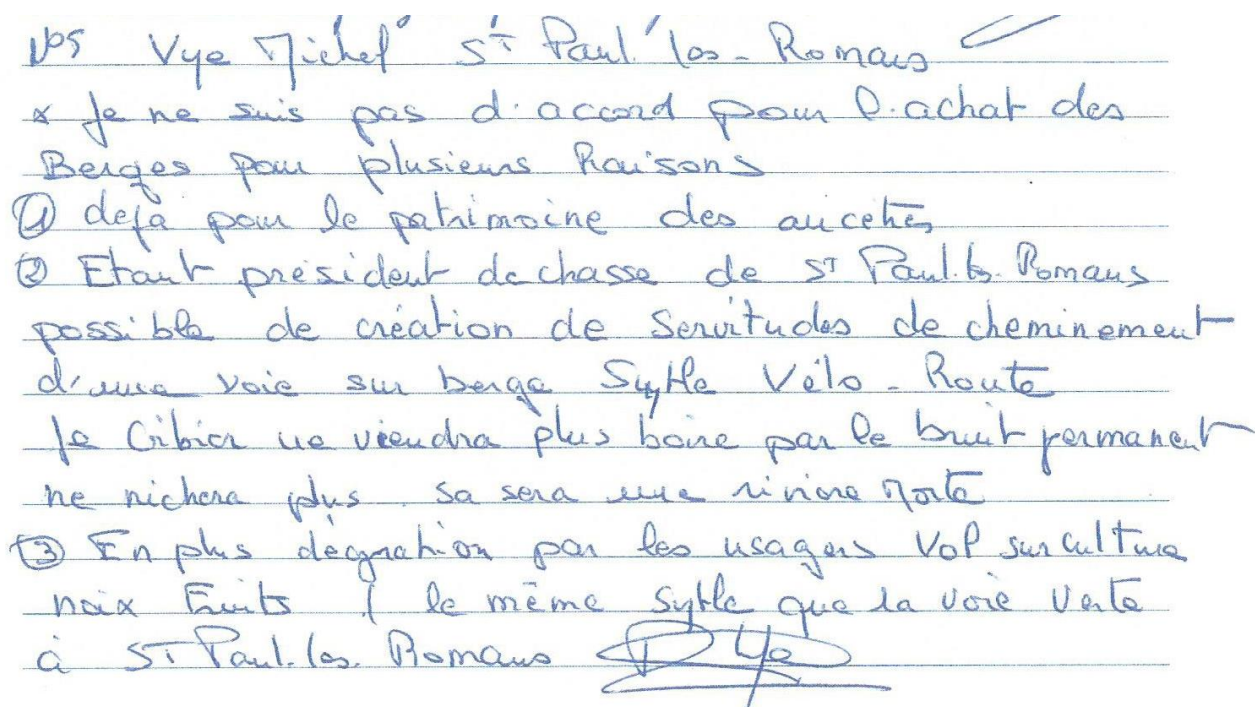 N°5 Vye Michel St Paul les-Romans
x Je ne suis pas d'accord pour l'achat des
Berges pour plusieurs Raisons
① deja pour le patrimoine des ancetres
② Etant président de chasse de ST Paul.ls.Romans
possible de création de Servitudes de cheminement
d'une voie sur berge Sytle Vélo-Route
le Gibier ne viendra plus boire par le bruit permanent
ne nichera plus sa sera une riviere Morte
③ En plus dégration par les usagers Vol sur culture
noix Fruits ( le même sytle que la voie Verte
à ST Paul.les.Romans Vye